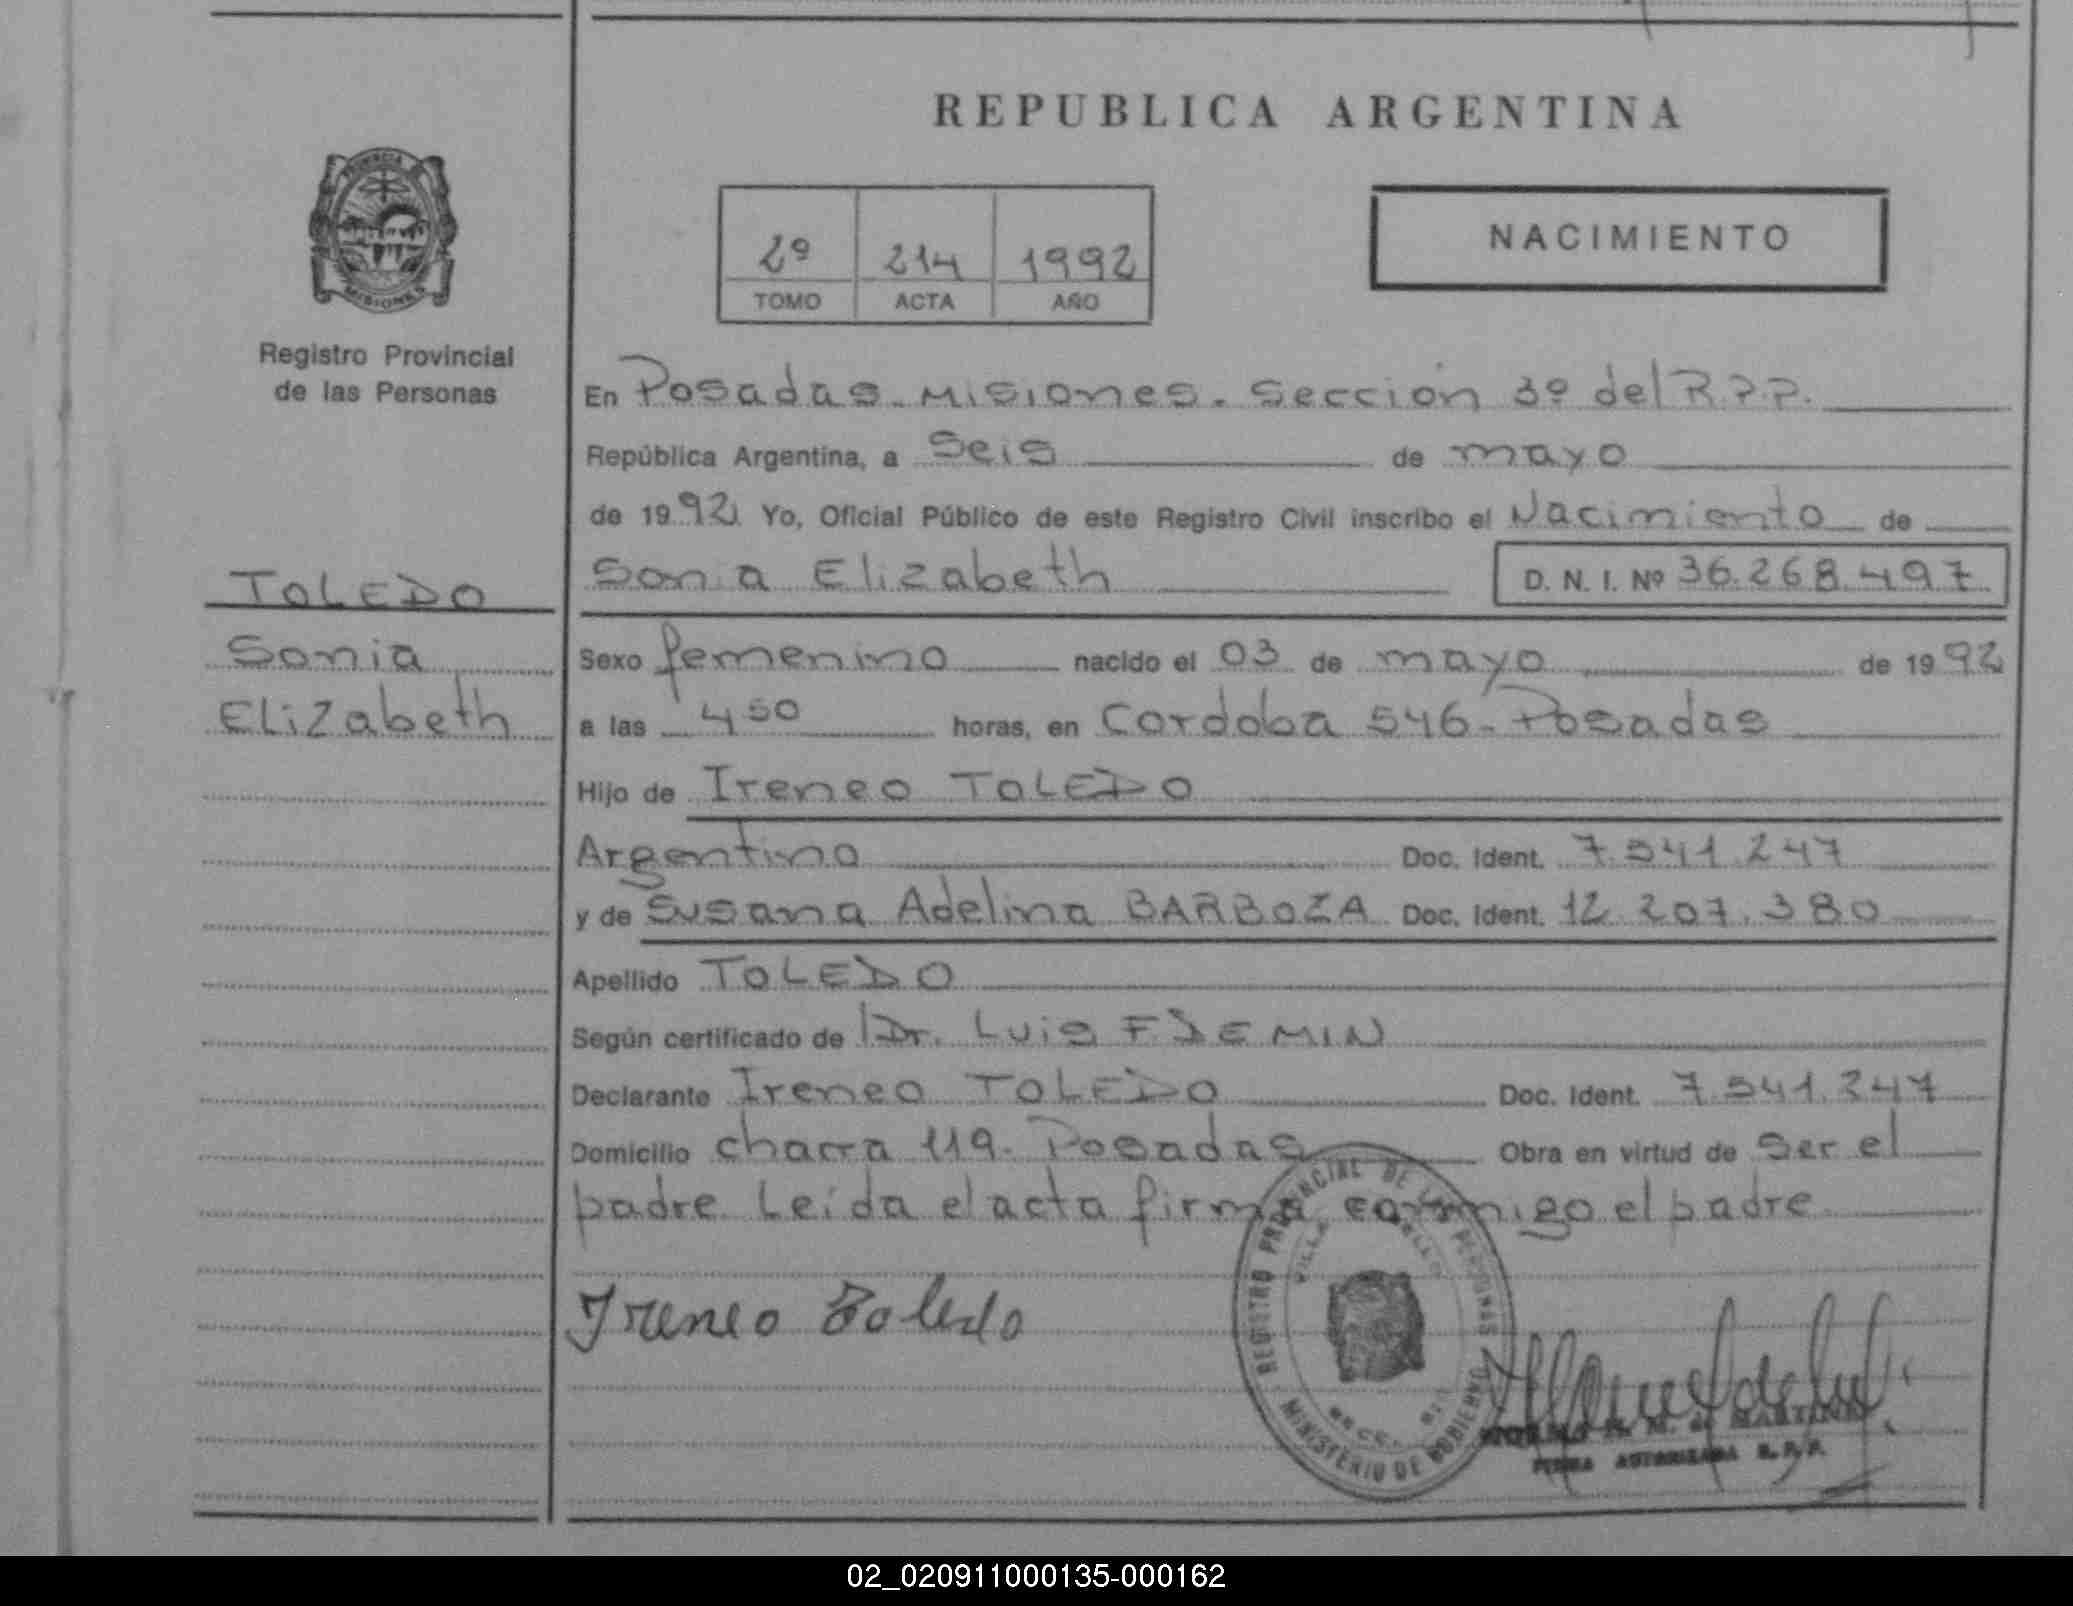 REPUBLICA ARGENTINA
PROVINCIA
MISIONES
Registro Provincial
de las Personas
2º 214 1992
TOMO ACTA AÑO
NACIMIENTO
En Posadas. Misiones. Sección 3º del R.P.P.
República Argentina, a Seis de mayo
de 1992 Yo, Oficial Público de este Registro Civil inscribo el Nacimiento de
Sonia Elizabeth D. N. I. Nº 36.268.497
TOLEDO
Sonia
Elizabeth
Sexo femenino nacido el 03 de mayo de 1992
a las 4 50 horas, en Cordoba 546-Posadas
Hijo de Ireneo TOLEDO
Argentino Doc. Ident. 7.541.247
y de Susana Adelina BARBOZA Doc. Ident. 12.207.380
Apellido TOLEDO
Según certificado de Dr. Luis
Declarante Ireneo TOLEDO Doc. Ident. 7.541.247
Domicilio chacra 119. Posadas Obra en virtud de ser el
padre Leída el acta firma conmigo el padre
Ireneo Toledo
REGISTRO PROVINCIAL DE LAS PERSONAS
MINISTERIO DE GOBIERNO
FIRMA AUTORIZADA R.P.P.
02_020911000135-000162